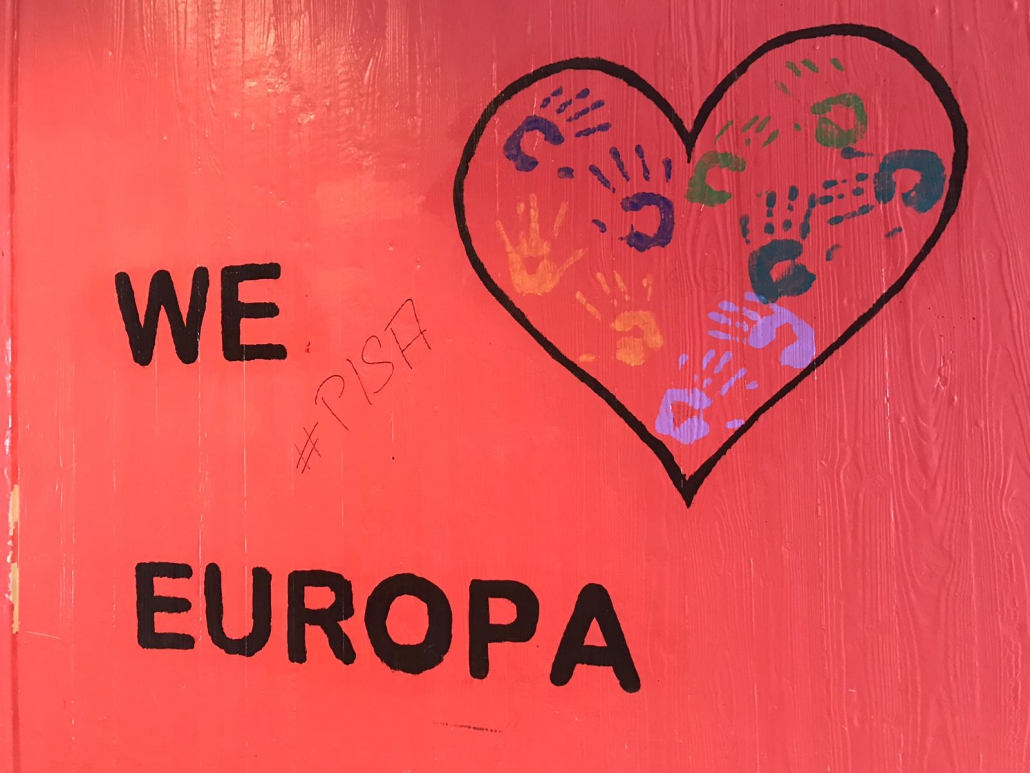 WE
#PISA
EUROPA